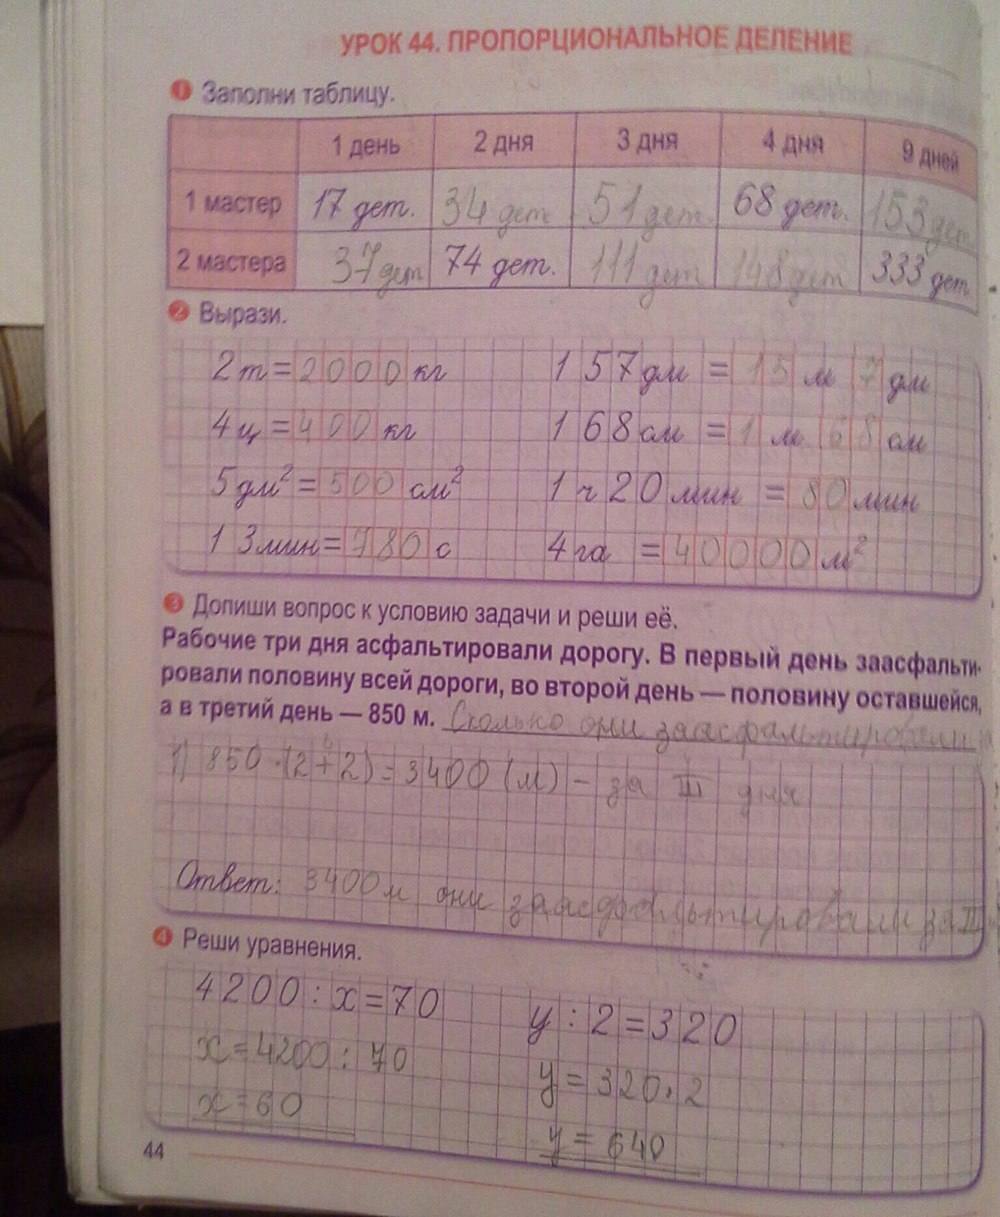 УРОК 44. ПРОПОРЦИОНАЛЬНОЕ ДЕЛЕНИЕ
1 Заполни таблицу.
1 день 2 дня 3 дня 4 дня 9 дней
1 мастер 17 дет. 34 дет 51 дет. 68 дет. 153 дет.
2 мастера 37 дет 74 дет. 111 дет 148 дет 333 дет.
2 Вырази.
2 т = 2000 кг 157 дм = 15 м 7 дм
4 ц = 400 кг 168 см = 1 м 68 см
5 дм² = 500 см² 1 ч 20 мин = 80 мин
13 мин = 780 с 4 га = 40000 м²
3 Допиши вопрос к условию задачи и реши её.
Рабочие три дня асфальтировали дорогу. В первый день заасфальти-
ровали половину всей дороги, во второй день — половину оставшейся,
а в третий день — 850 м. Сколько они заасфальтировали
1) 850 · (2 + 2) = 3400 (м) – за III дня
Ответ: 3400 м они заасфальтировали за III
4 Реши уравнения.
4200 : x = 70 y : 2 = 320
x = 4200 : 70 y = 320 · 2
x = 60 y = 640
44